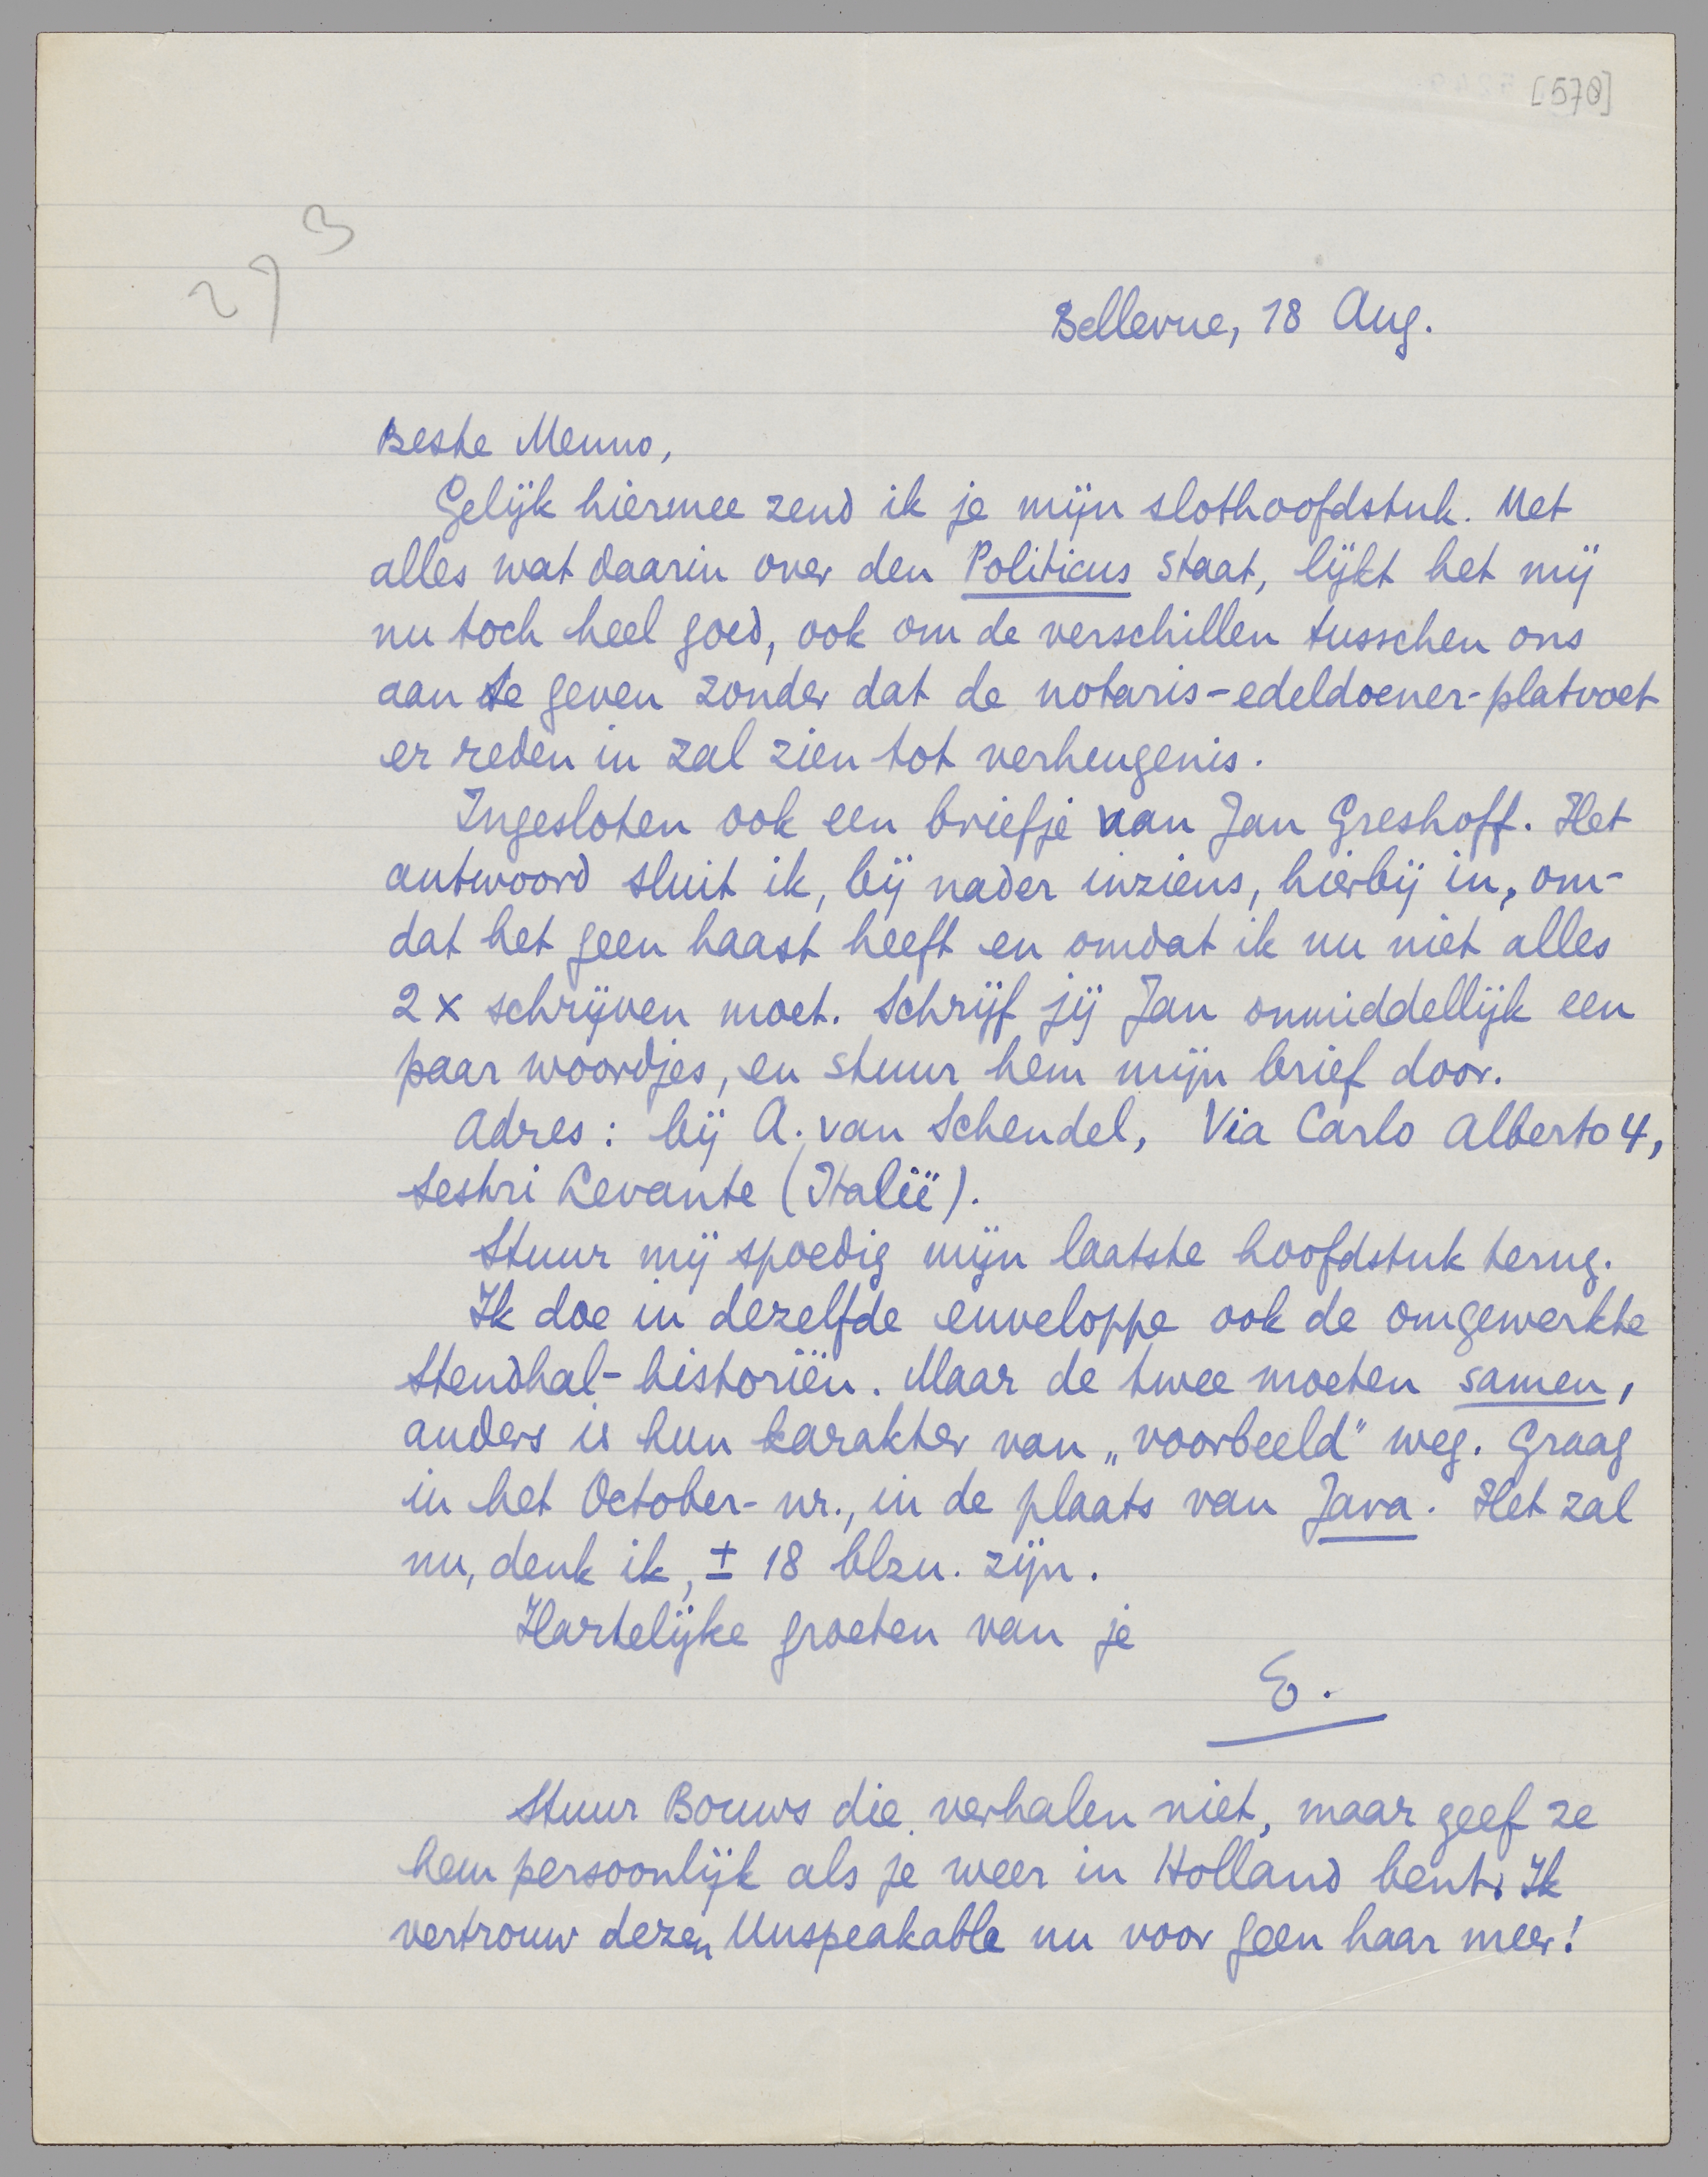 [578]
293
Bellevue, 18 Aug.
Beste Menno,
Gelijk hiermee zend ik je mijn slothoofdstuk. Met
alles wat daarin over den Politicus staat, lijkt het mij
nu toch heel goed, ook om de verschillen tusschen ons
aan te geven zonder dat de notaris-edeldoener-platvoet
er reden in zal zien tot verheugenis.
Ingesloten ook een briefje van Jan Greshoff. Het
antwoord sluit ik, bij nader inziens, hierbij in, om-
dat het geen haast heeft en omdat ik nu niet alles
2 x schrijven moet. Schrijf jij Jan onmiddellijk een
paar woordjes, en stuur hem mijn brief door.
Adres: bij A. van Schendel, Via Carlo Alberto 4,
Sestri Levante (Italië).
Stuur mij spoedig mijn laatste hoofdstuk terug.
Ik doe in dezelfde enveloppe ook de omgewerkte
Stendhal-historiën. Maar de twee moeten samen,
anders is hun karakter van „voorbeeld" weg. Graag
in het October-nr., in de plaats van Java. Het zal
nu, denk ik, ± 18 blzn. zijn.
Hartelijke groeten van je
E.
Stuur Bouws die verhalen niet, maar geef ze
hem persoonlijk als je weer in Holland bent. Ik
vertrouw dezen Unspeakable nu voor geen haar meer!